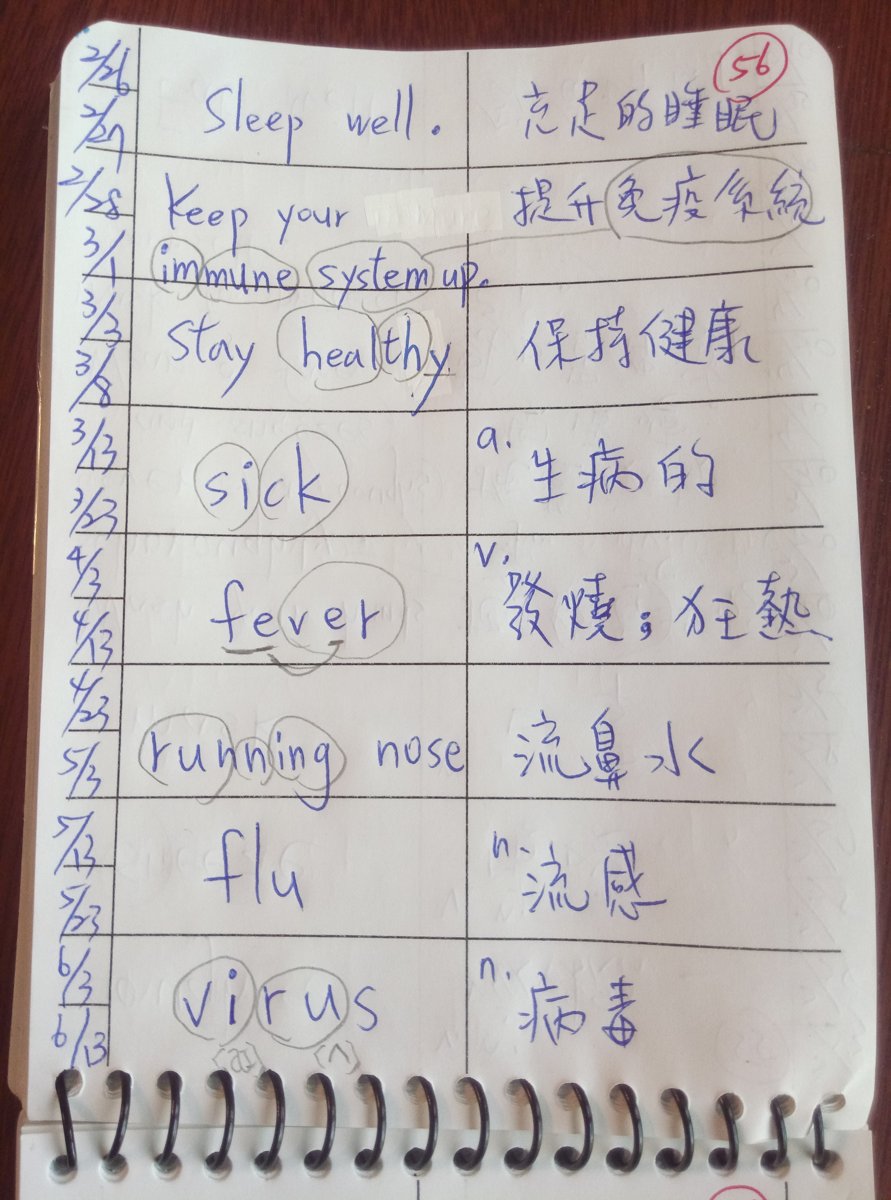 56
2/26
2/27
Sleep well. 充足的睡眠
2/28
Keep your 提升免疫系統
3/1
immune system up.
3/3
Stay healthy 保持健康
3/8
3/13
sick a. 生病的
3/23
4/3
fever v. 發燒;狂熱
4/13
4/23
running nose 流鼻水
5/3
5/13
flu n. 流感
5/23
6/3
virus n. 病毒
6/13
[aɪ] [ʌ]